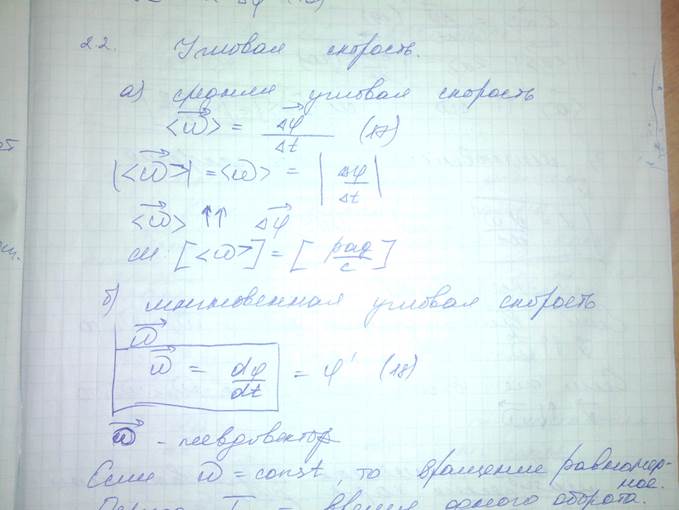 2.2. Угловая скорость.
а) средняя угловая скорость
<ω⃗> = Δφ⃗ / Δt (17)
|<ω⃗>| = <ω> = |Δφ / Δt|
<ω⃗> ↑↑ Δφ⃗
си [<ω>] = [рад/с]
б) мгновенная угловая скорость
ω⃗
ω⃗ = dφ/dt = φ' (18)
ω⃗ - псевдовектор
Если ω⃗ = const, то вращение равномер-
ное.
T - время одного оборота.